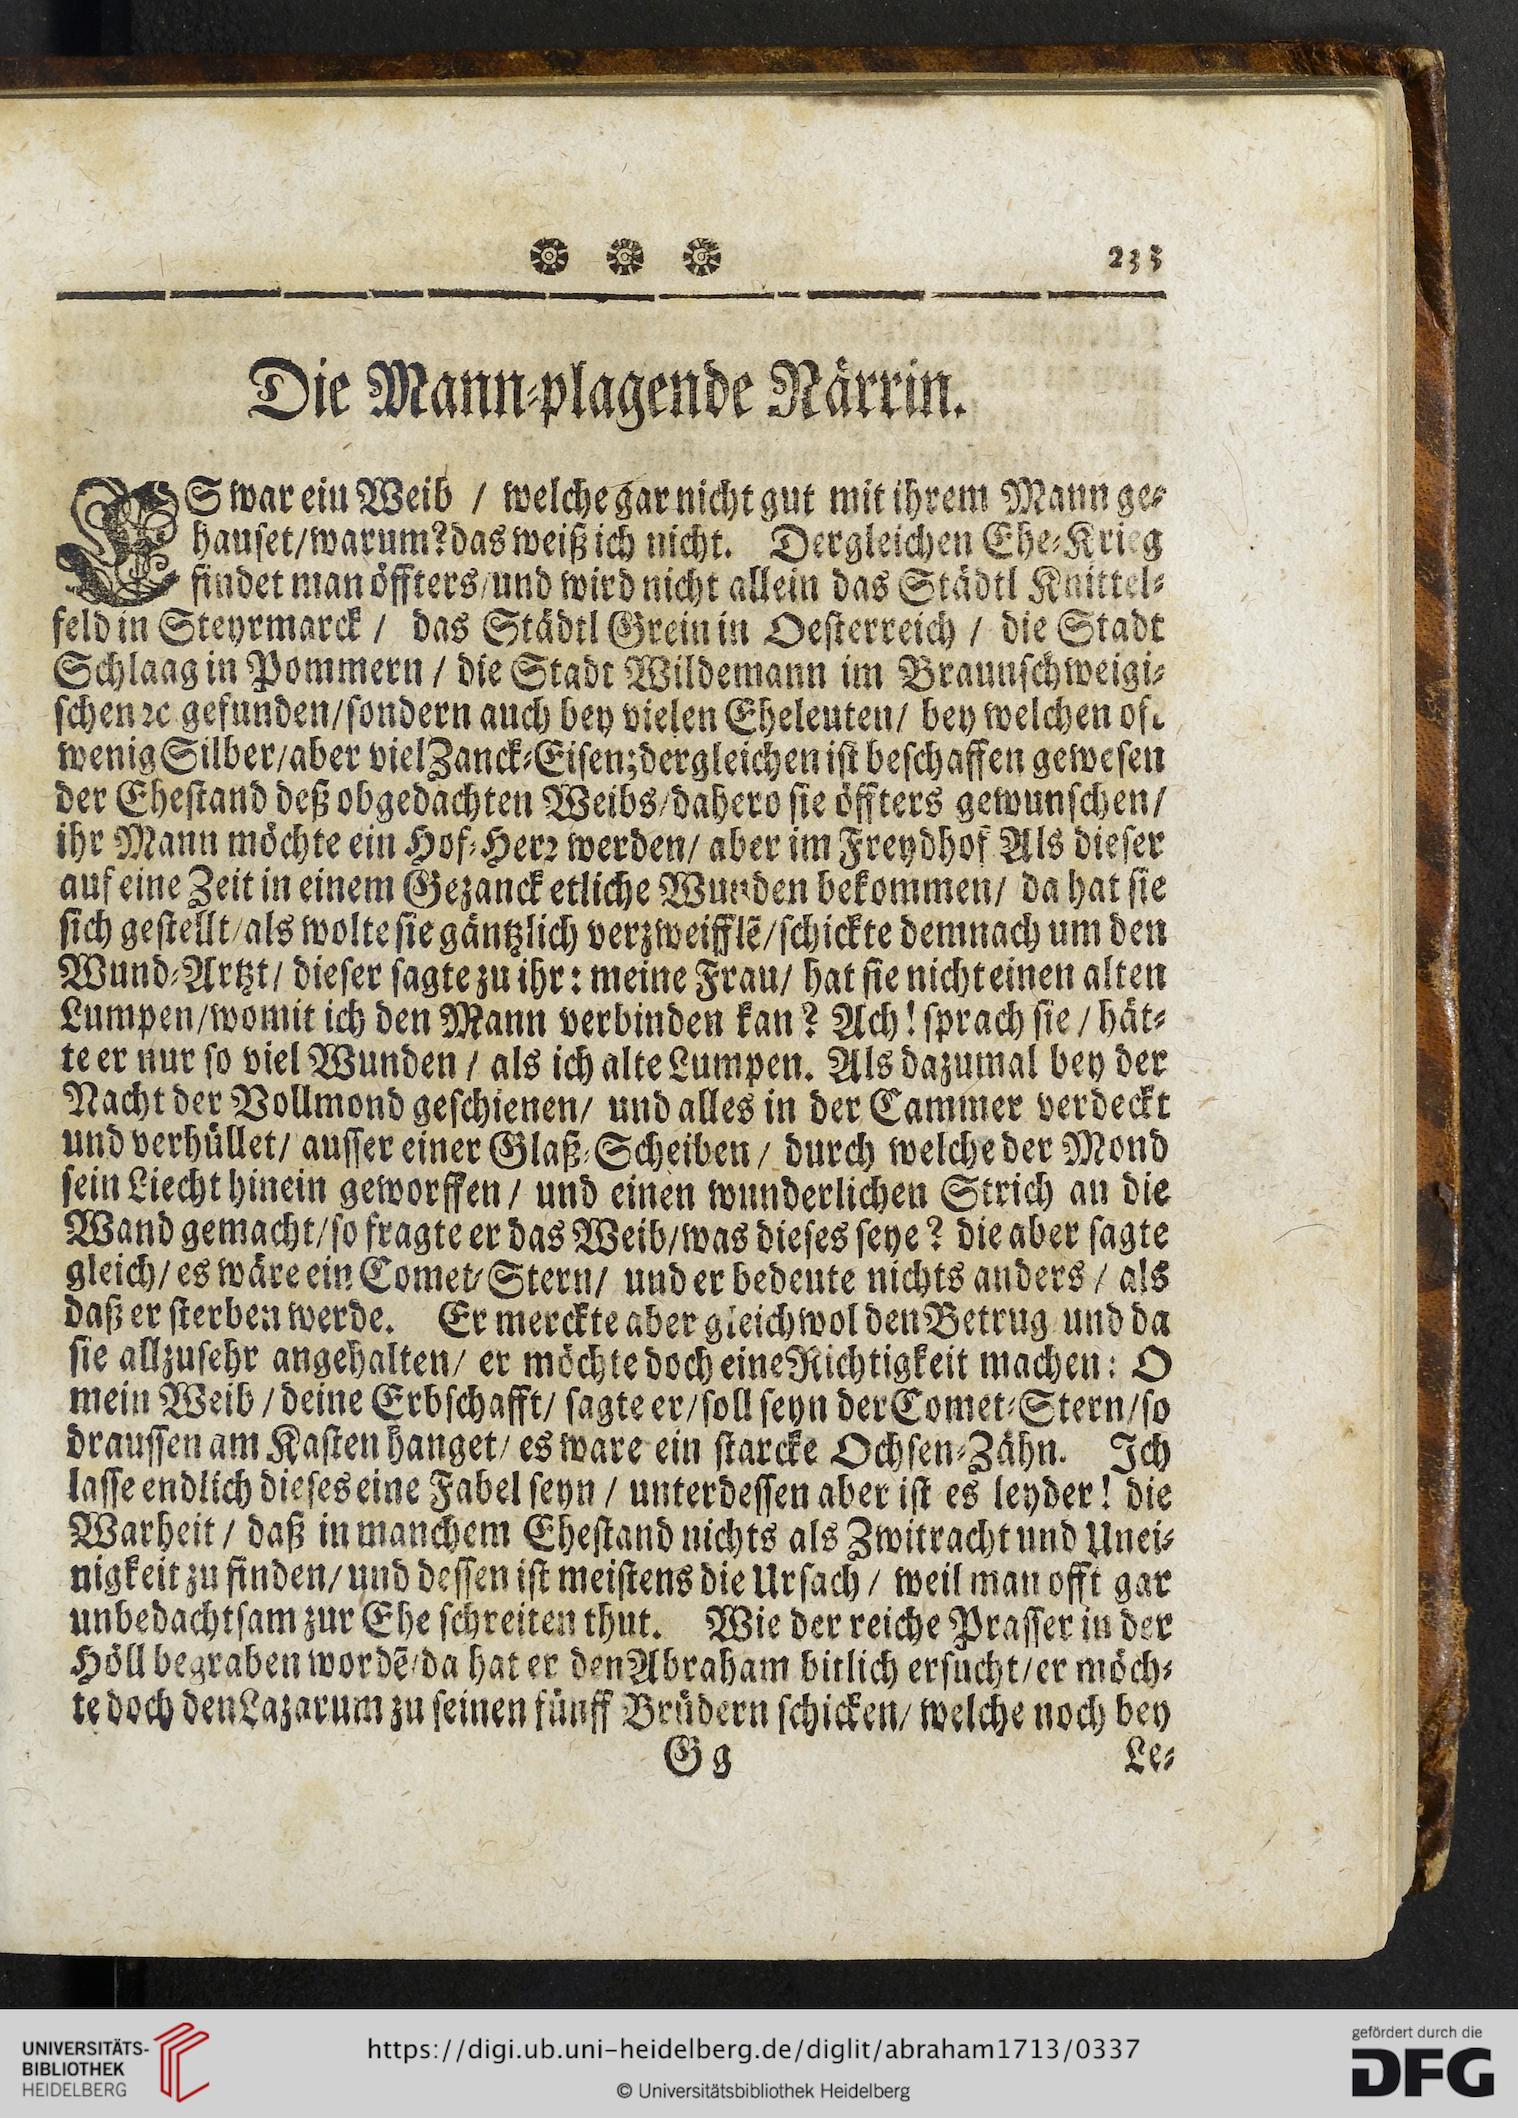 233
Die Mann-plagende Närrin.
ES war ein Weib / welche gar nicht gut mit ihrem Mann ge-
hauset/warum?das weiß ich nicht. Dergleichen Ehe-Krieg
findet man öffters/und wird nicht allein das Städtl Knittel-
feld in Steyrmarck / das Städtl Grein in Oesterreich / die Stadt
Schlaag in Pommern / die Stadt Wildemann im Braunschweigi-
schen ꝛc gefunden/sondern auch bey vielen Eheleuten/ bey welchen oft
wenig Silber/aber viel Zanck-Eisen;dergleichen ist beschaffen gewesen
der Ehestand deß obgedachten Weibs/dahero sie öffters gewunschen/
ihr Mann möchte ein Hof-Herꝛ werden/ aber im Freydhof Als dieser
auf eine Zeit in einem Gezanck etliche Wunden bekommen/ da hat sie
sich gestellt/als wolte sie gäntzlich verzweifflē/schickte demnach um den
Wund-Artzt/ dieser sagte zu ihr: meine Frau/ hat sie nicht einen alten
Lumpen/womit ich den Mann verbinden kan? Ach! sprach sie / hät-
te er nur so viel Wunden / als ich alte Lumpen. Als dazumal bey der
Nacht der Vollmond geschienen/ und alles in der Cammer verdeckt
und verhüllet/ ausser einer Glaß-Scheiben / durch welche der Mond
sein Liecht hinein geworffen / und einen wunderlichen Strich an die
Wand gemacht/so fragte er das Weib/was dieses seye? die aber sagte
gleich/ es wäre ein Comet-Stern/ und er bedeute nichts anders / als
daß er sterben werde. Er merckte aber gleichwol den Betrug und da
sie allzusehr angehalten/ er möchte doch eine Richtigkeit machen: O
mein Weib / deine Erbschafft/ sagte er/soll seyn der Comet-Stern/so
draussen am Kasten hanget/ es ware ein starcke Ochsen-Zähn. Ich
lasse endlich dieses eine Fabel seyn / unterdessen aber ist es leyder! die
Warheit / daß in manchem Ehestand nichts als Zwitracht und Unei-
nigkeit zu finden/ und dessen ist meistens die Ursach / weil man offt gar
unbedachtsam zur Ehe schreiten thut. Wie der reiche Prasser in der
Höll begraben wordē/da hat er den Abraham bitlich ersucht/er möch-
te doch den Lazarum zu seinen fünff Brüdern schicken/ welche noch bey
Gg Le-
UNIVERSITÄTS-
BIBLIOTHEK
HEIDELBERG
https://digi.ub.uni-heidelberg.de/diglit/abraham1713/0337
© Universitätsbibliothek Heidelberg
gefördert durch die
DFG